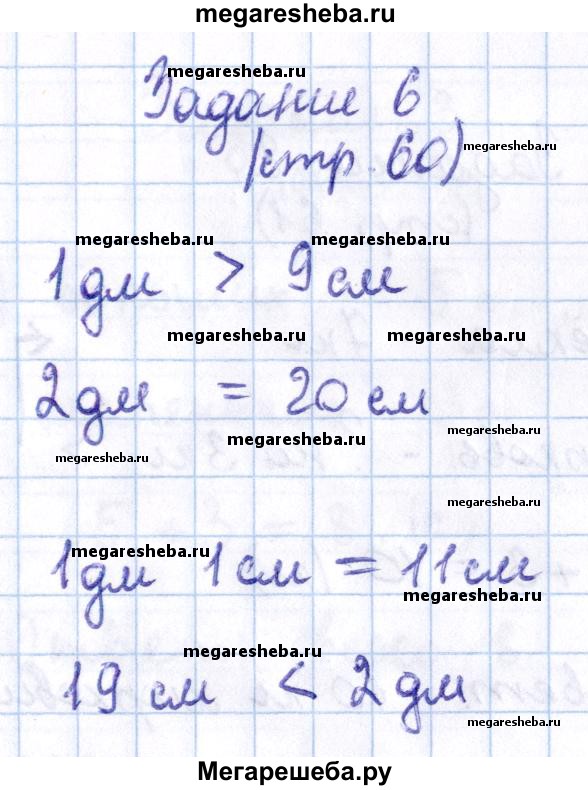 megaresheba.ru
megaresheba.ru
Задание 6
megaresheba.ru
(стр. 60)
megaresheba.ru megaresheba.ru
1 дм > 9 см
megaresheba.ru megaresheba.ru
2 дм = 20 см
megaresheba.ru
megaresheba.ru
megaresheba.ru
megaresheba.ru
megaresheba.ru
1 дм 1 см = 11 см
megaresheba.ru
megaresheba.ru
19 см < 2 дм
megaresheba.ru
Мегарешеба.ру